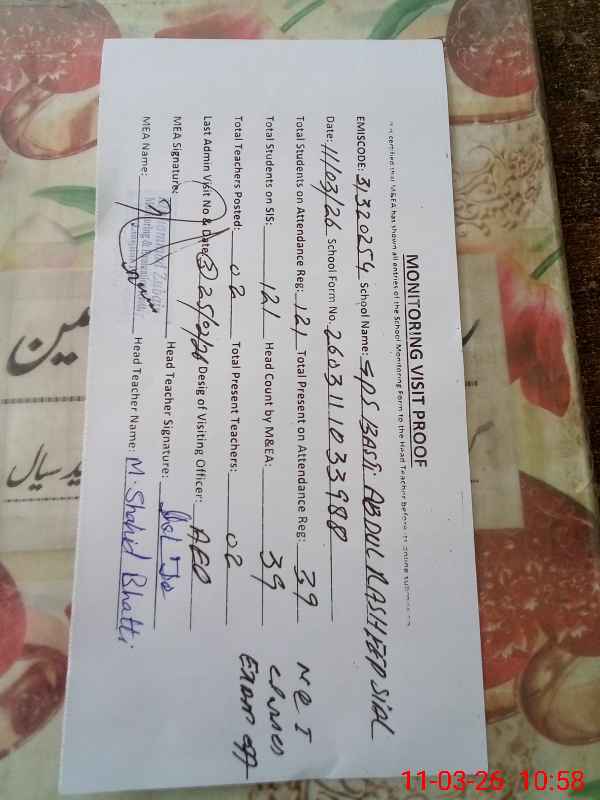 MONITORING VISIT PROOF
It is certified that M&EA has shown all entries of the School Monitoring Form to the Head Teacher before its online submission
EMISCODE: 31320254 School Name: GPS BASTI ABDUL RASHEED SIAL
Date: 11/03/26 School Form No. 2603111033988
Total Students on Attendance Reg: 121 Total Present on Attendance Reg: 39
Total Students on SIS: 121 Head Count by M&EA: 39
Total Teachers Posted: 02 Total Present Teachers: 02
Last Admin Visit No & Date: (3) 25/2/26 Desig of Visiting Officer: AEO
MEA Signature: Head Teacher Signature:
MEA Name: Head Teacher Name: M. Shahid Bhatti
classes
Exam off
سیال
11-03-26 10:58